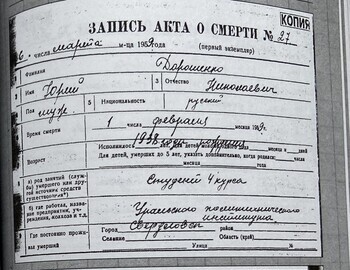 КОПИЯ
ЗАПИСЬ АКТА О СМЕРТИ № 27
6 числа марта м-ца 1959 года (первый экземпляр)
Фамилия Дорошенко
Имя Юрий 3 Отчество Николаевич
Пол муж. 5 Национальность русский
Время смерти 1 числа февраля месяца 1959 г.
Возраст Исполнилось 1938 года рождения
Для детей, умерших до 5 лет, указать дополнительно, когда родился: числа
месяца г.
а) род занятий (служ умершего или дру
ой источник средств
существования) Студент 4 курса
б) где работал, назва
ние предприятия, уч-
реждения, колхоза и т. д. Уральского политехнического
института
Где постоянно прожи-
вал умерший Город Свердловск район
Селение Область (край)
Улица №